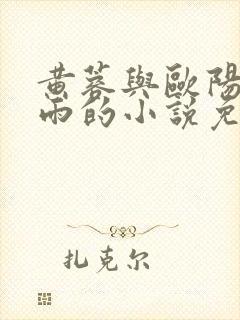 黄蓉與歐陽
雨的小說免
扎克尔